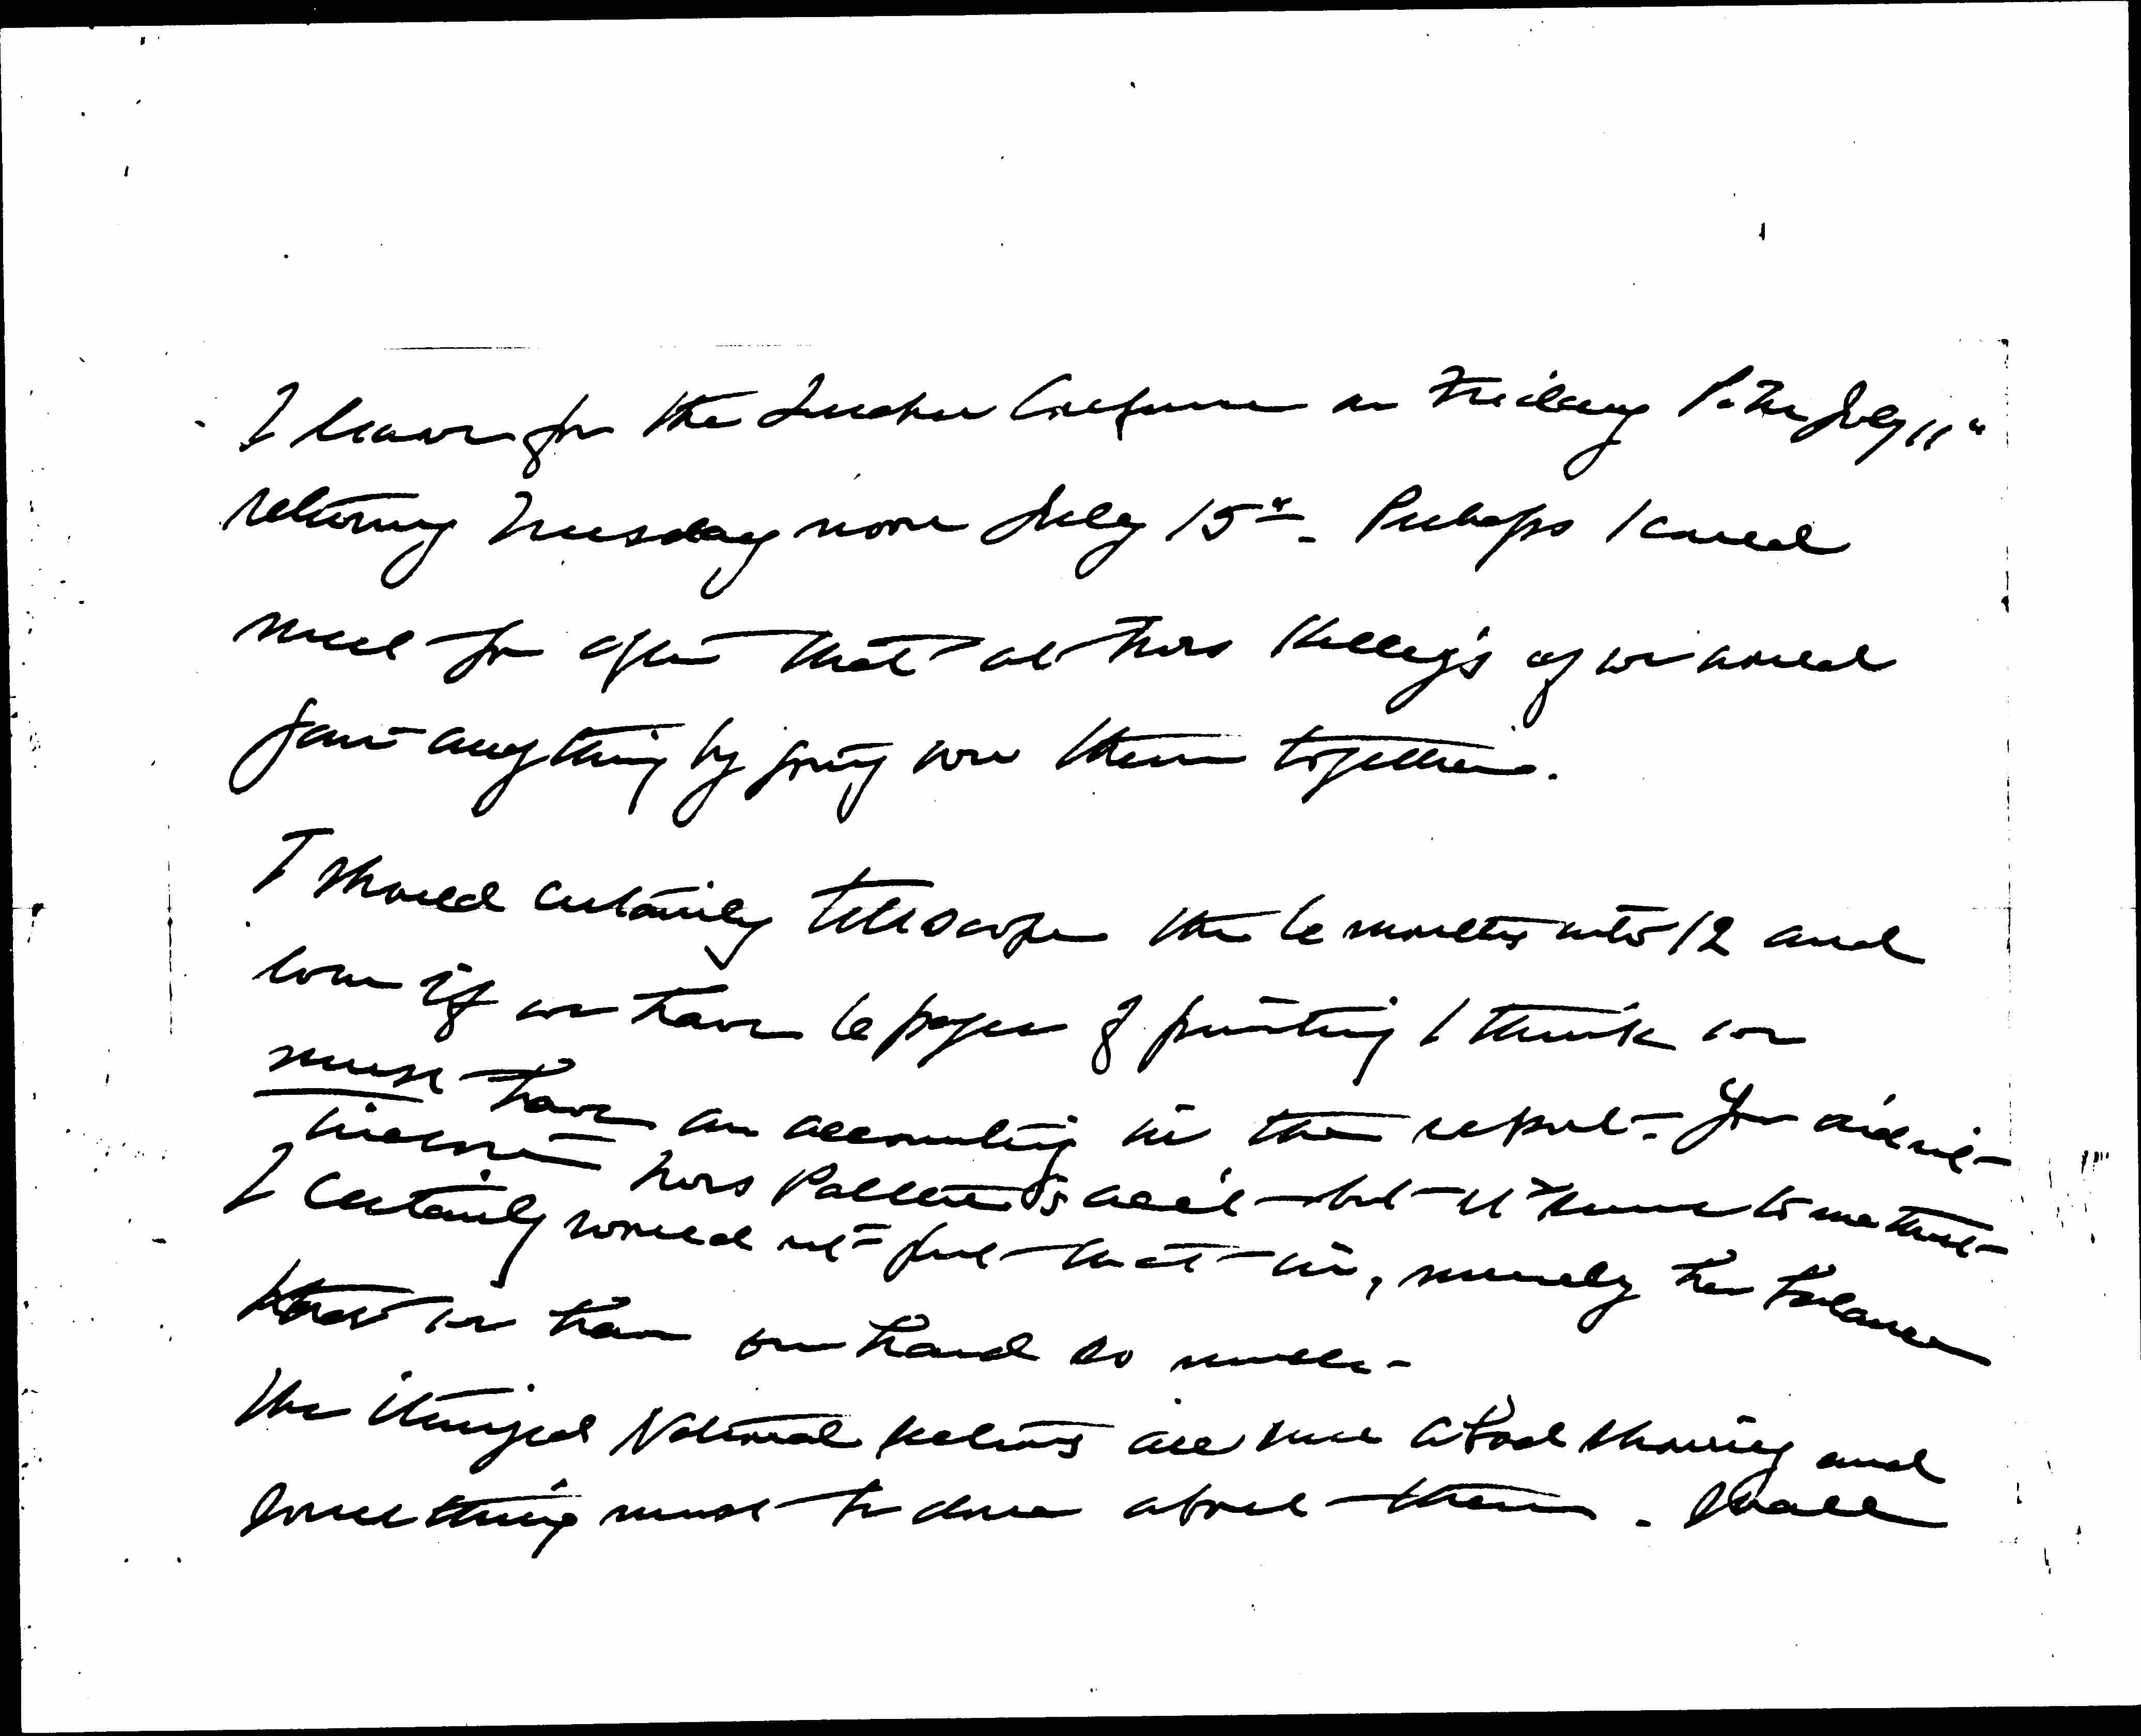 I leave for the Conference on Friday P.M. July 11"
returning Tuesday noon July 15". Perhaps I could
meet for after that at Miss Kellogg's if we could
gain anything by going over them together.
I should certainly telescope the 6 months into 12 and
even if we have 6 pages of printing I think we
must have an accounting in the report. You did not
Miss acc't but it seems to me that
I certainly would not put that in, namely the balance
we have on hand so much.
The National are some a bad showing and
something must be done about them. Shall